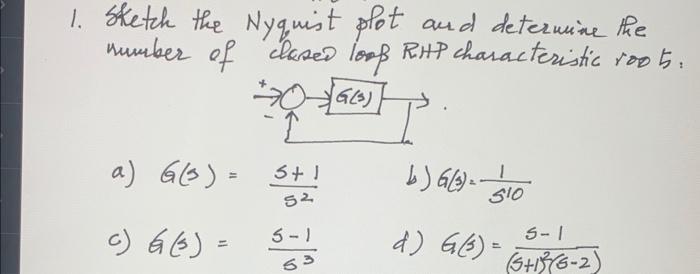 1. Sketch the Nyquist plot and determine the
number of closed loop RHP characteristic roots.
+
G(s)
-
a) G(s) = s+1 / s^2    b) G(s) = 1 / s^10
c) G(s) = s-1 / s^3    d) G(s) = s-1 / (s+1)^2(s-2)